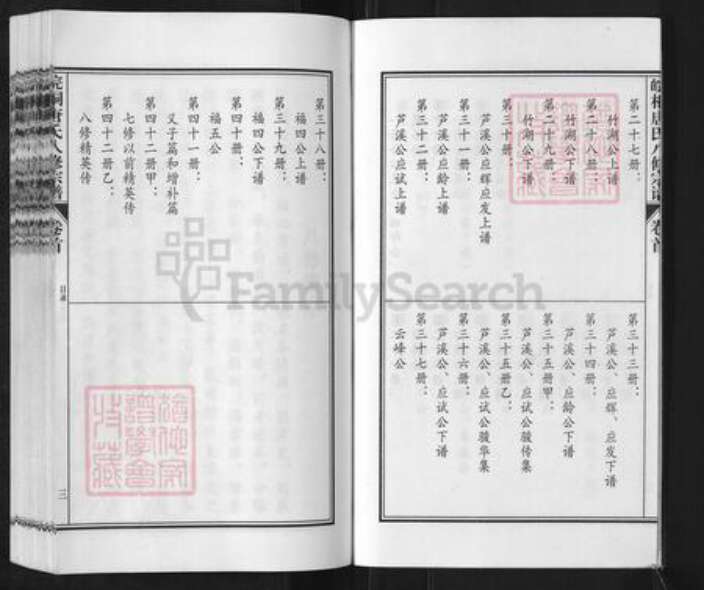 皖桐唐氏八修宗谱
卷首
第二十七册：
竹湖公上谱
第二十八册：
竹湖公下谱
第二十九册：
竹湖公下谱
第三十册：
芦溪公应辉应发上谱
第三十一册：
芦溪公应龄上谱
第三十二册：
芦溪公应试上谱
第三十三册：
芦溪公、应辉、应发下谱
第三十四册：
芦溪公、应龄公下谱
第三十五册甲：
芦溪公、应试公骏传集
第三十五册乙：
芦溪公、应试公骏华集
第三十六册：
芦溪公、应试公下谱
第三十七册：
云峰公
第三十八册：
福四公上谱
第三十九册：
福四公下谱
第四十册：
福五公
第四十一册：
父子篇和增补篇
第四十二册甲：
七修以前精英传
第四十二册乙：
八修精英传
皖桐唐氏八修宗谱
卷首
目录
三
FamilySearch